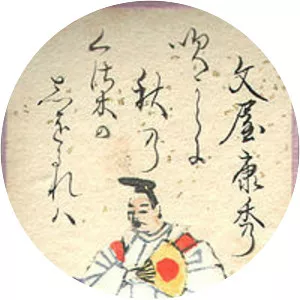 文屋康秀
吹からに
秋乃
くさ木の
志をるれハ